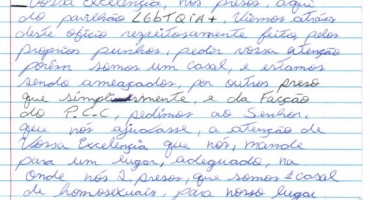 Vossa Excelência, nós presos, aqui
do pavilhão LGBTQIA+, Viemos atráves
deste oficio respeitosamente feitos pelos
proprios punhos, pedir vossa atenção
porém somos um casal, e estamos
sendo ameaçados, por outros preso
que simplesmente, e da Facção
do P.C.C, pedimos ao Senhor,
que nós ajudasse, a atenção de
Vossa Excelencia que nós, mande
para um lugar, adequado, na
Onde nós 2 presos, que somos 1 casal
de homosexuais, para nosso lugar